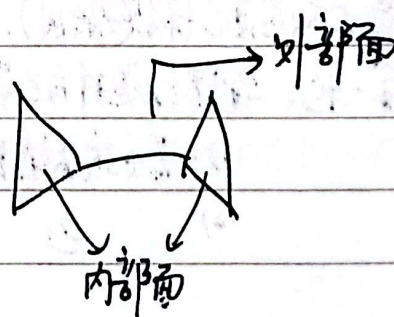 外部面
内部面